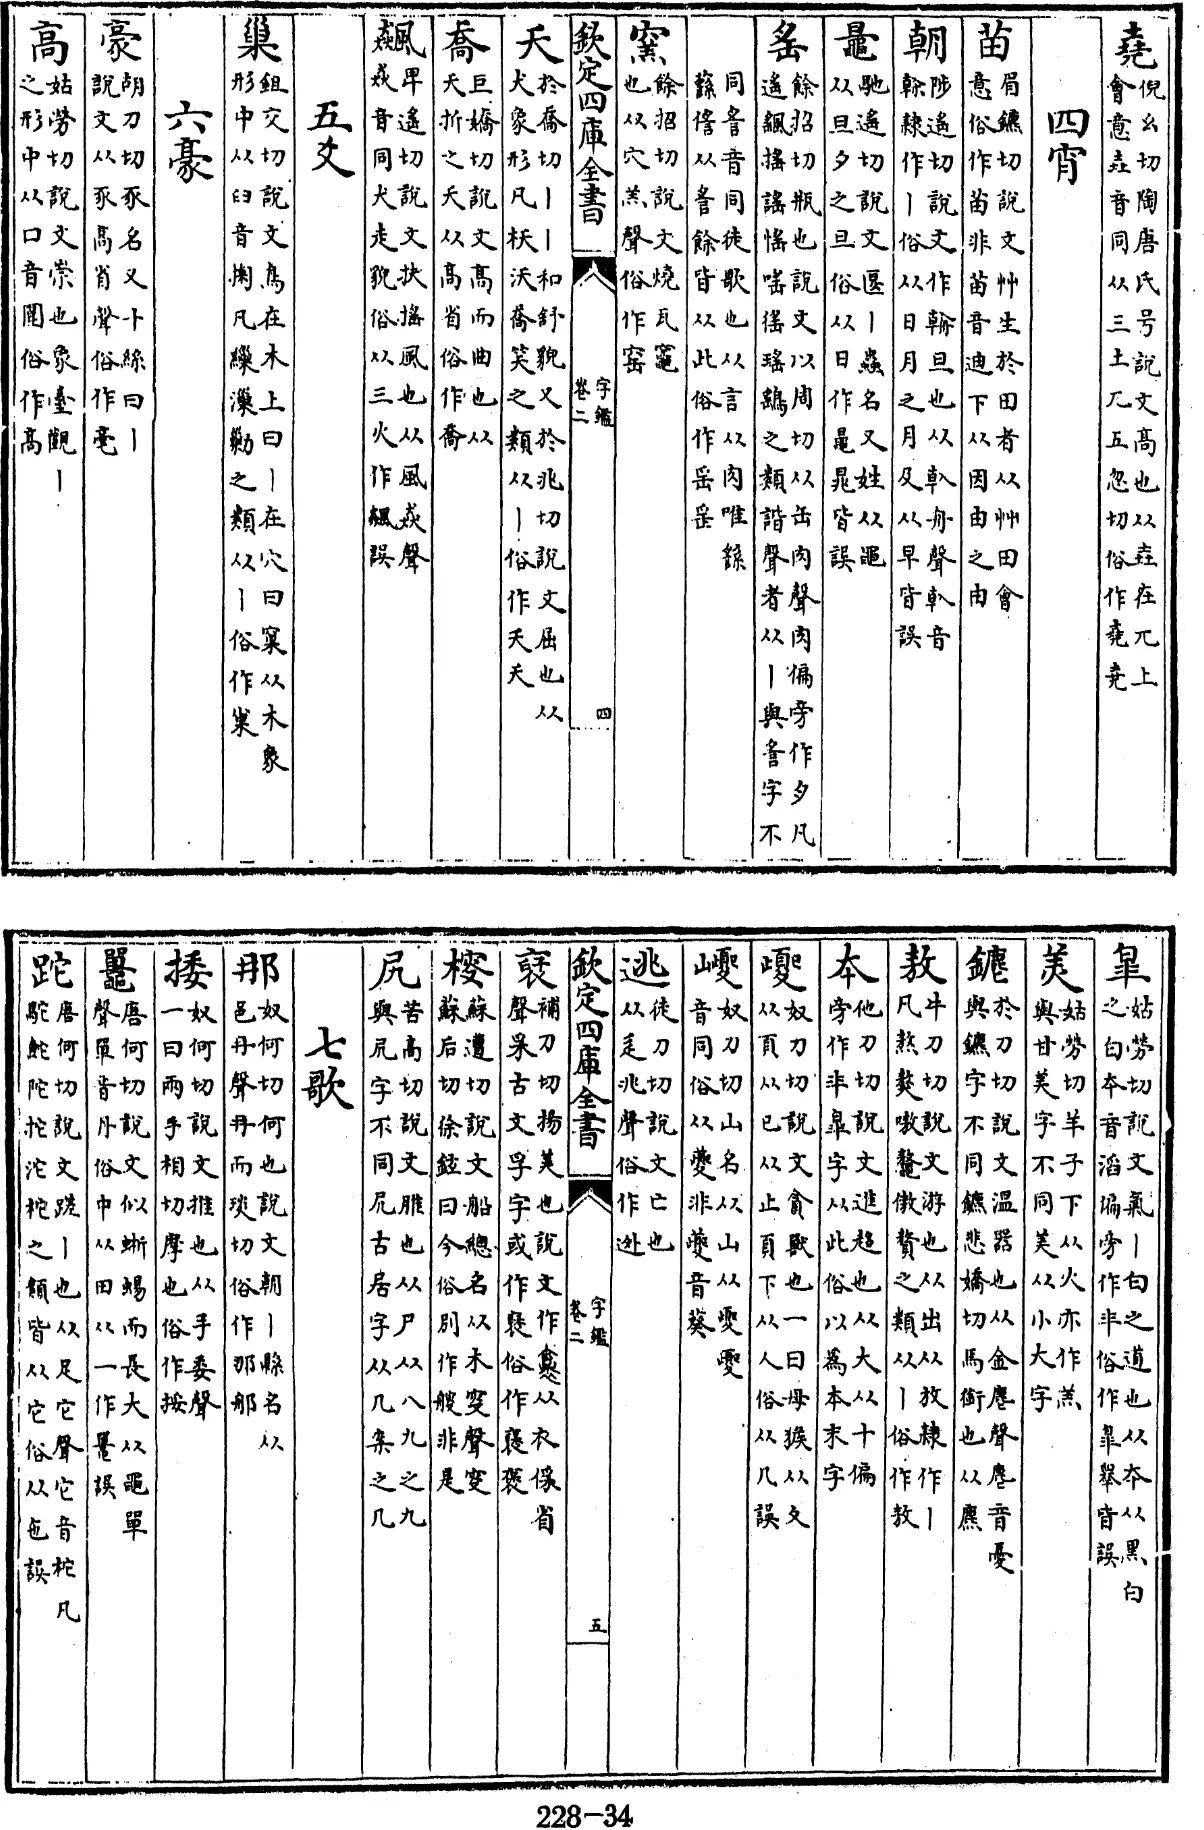 堯倪幺切陶唐氏号說文高也从垚在兀上會意垚音同从三土兀五忽切俗作堯尭
四宵
苗眉鑣切說文艸生於田者从艸田會意俗作苖非苖音迪下从因由之由
朝陟遙切說文作翰旦也从倝舟聲倝音榦隷作丨俗从日月之月及从早皆誤
鼂馳遙切說文匽丨蟲名又姓从黽从旦夕之旦俗从日作鼌晁皆誤
䍃餘招切瓶也說文以周切从缶肉聲肉偏旁作夕凡遙颻搖謠愮嗂徭瑤鷂之類諧聲者从丨與䚻字不
同䚻音同徒歌也从言从肉唯繇䌛儋从䚻餘皆从此俗作䍃䍃
窯餘招切說文燒瓦竈也从穴羔聲俗作窑
欽定四庫全書
字鑑
卷二
四
夭於喬切丨丨和舒貌又於兆切說文屈也从犬象形凡枖沃喬笑之類从丨俗作天夭
喬巨嬌切說文高而曲也从夭折之夭从高省俗作喬
飆卑遙切說文扶搖風也从風猋聲猋音同犬走貌俗从三火作飇誤
五爻
巢鉏交切說文鳥在木上曰丨在穴曰窠从木象形中从臼音掬凡繅漅勦之類从丨俗作巢
六豪
豪胡刀切豕名又十絲曰丨說文从豕高省聲俗作毫
高姑勞切說文崇也象臺觀丨之形中从口音圍俗作髙
皐姑勞切說文氣丨白之道也从夲从黑白之白夲音滔偏旁作半俗作皋睪皆誤
羙姑勞切羊子下从火亦作羔與甘美字不同美从小大字
鑣於刀切說文溫器也从金麀聲麀音憂與鑣字不同鑣悲嬌切馬銜也从麃
敖牛刀切說文游也从出从放隷作丨凡熬獒嗷鼇傲贅之類从丨俗作敖
夲他刀切說文進趨也从大从十偏旁作半皐字从此俗以爲本末字
夒奴刀切說文貪獸也一曰母猴从夂从頁从巳从止頁下从人俗从几誤
巎奴刀切山名从山从夒夒音同俗从夔非夔音葵
逃徒刀切說文亡也从辵兆聲俗作迯
欽定四庫全書
字鑑
卷二
五
褒補刀切揚美也說文作襃从衣保省聲采古文孚字或作裒俗作襃褒
㮴蘇遭切說文船總名从木叜聲叜蘇后切徐鉉曰今俗別作艘非是
尻苦高切說文脽也从尸从八九之九與凥字不同凥古居字从几案之几
七歌
那奴何切何也說文朝丨縣名从邑冄聲冄而琰切俗作那郍
捼奴何切說文推也从手委聲一曰兩手相切摩也俗作挼
鼉唐何切說文似蜥蜴而長大从黽單聲單音丹俗中从田从一作鼉誤
跎唐何切說文蹉丨也从足它聲它音柁凡駝鮀陀拕沱柁之類皆从它俗从㐌誤
228-34